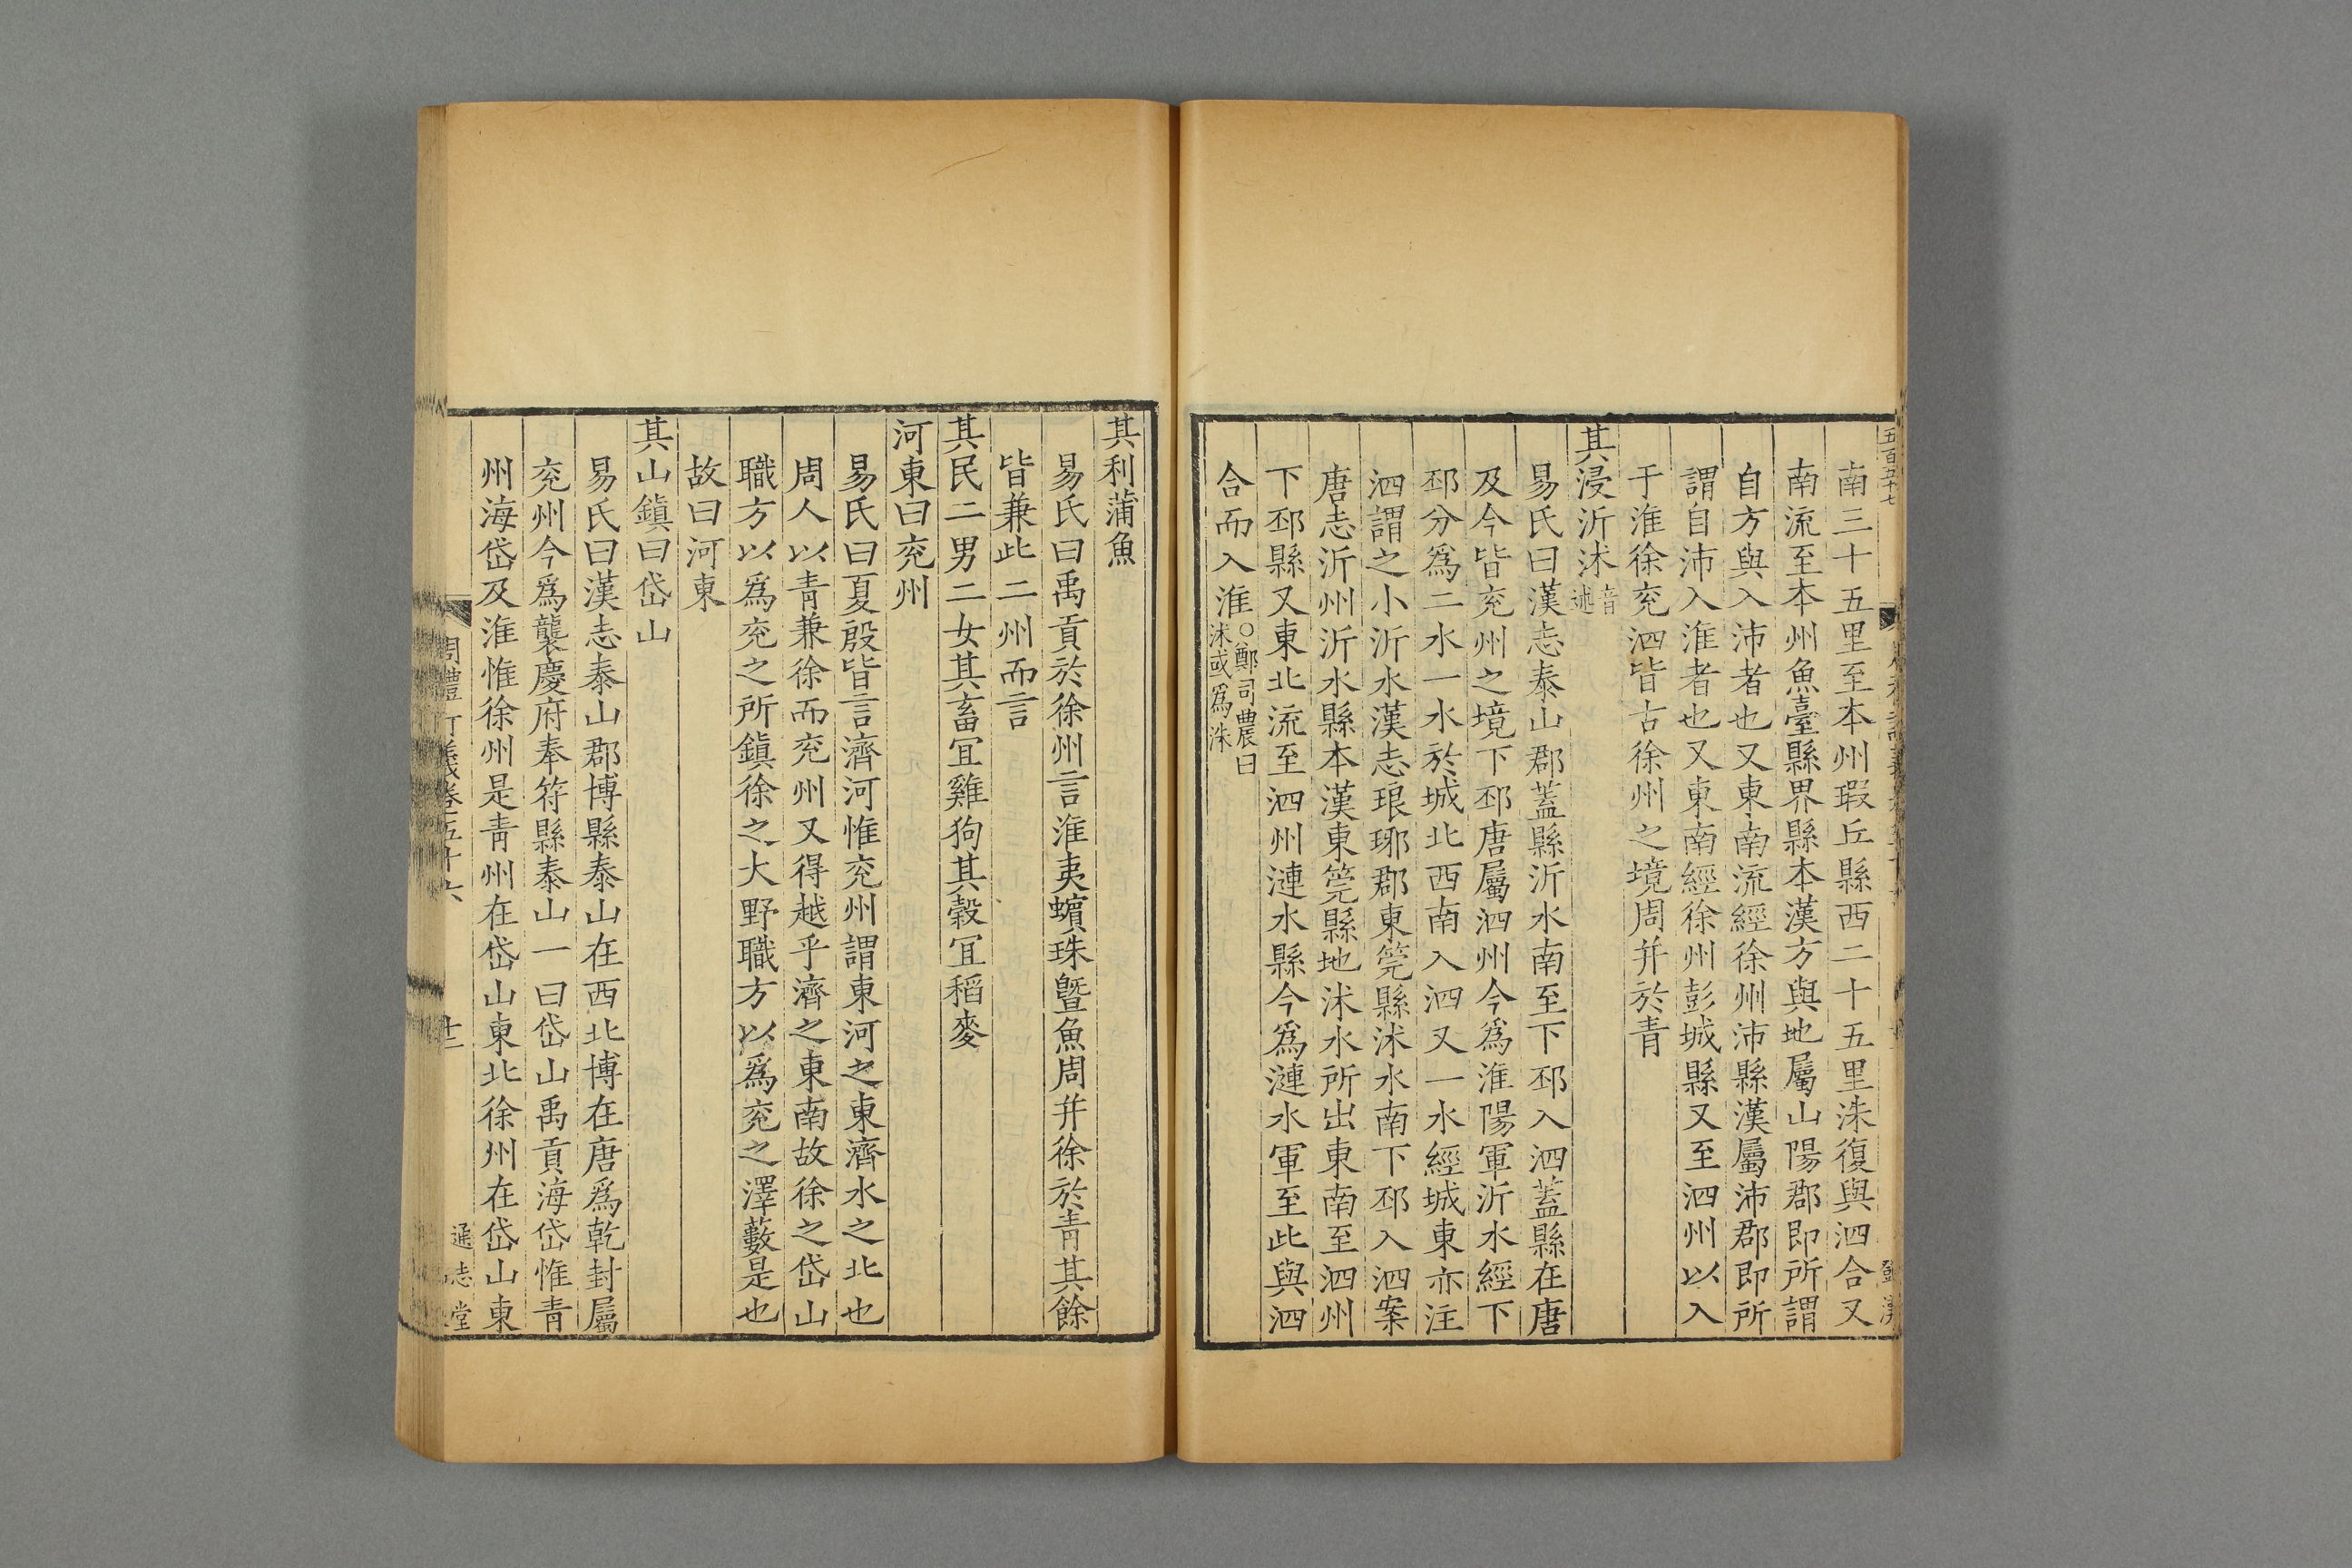 五百五十七
南三十五里至本州瑕丘縣西二十五里洙復與泗合又
南流至本州魚臺縣界縣本漢方與地屬山陽郡即所謂
自方與入沛者也又東南流經徐州沛縣漢屬沛郡即所
謂自沛入淮者也又東南經徐州彭城縣又至泗州以入
于淮徐兖泗皆古徐州之境周并於青
其浸沂沭音述
易氏曰漢志泰山郡蓋縣沂水南至下邳入泗蓋縣在唐
及今皆兖州之境下邳唐屬泗州今為淮陽軍沂水經下
邳分為二水一水於城北西南入泗又一水經城東亦注
泗謂之小沂水漢志琅琊郡東筦縣沭水南下邳入泗案
唐志沂州沂水縣本漢東筦縣地沭水所出東南至泗州
下邳縣又東北流至泗州漣水縣今為漣水軍至此與泗
合而入淮○鄭司農曰沭或為洙
其利蒲魚
易氏曰禹貢於徐州言淮夷蠙珠曁魚周并徐於青其餘
皆兼此二州而言
其民二男二女其畜宜雞狗其穀宜稻麥
河東曰兖州
易氏曰夏殷皆言濟河惟兖州謂東河之東濟水之北也
周人以青兼徐而兖州又得越乎濟之東南故徐之岱山
職方以為兖之所鎮徐之大野職方以為兖之澤藪是也
故曰河東
其山鎮曰岱山
易氏曰漢志泰山郡博縣泰山在西北博在唐為乾封屬
兖州今為襲慶府奉符縣泰山一曰岱山禹貢海岱惟青
州海岱及淮惟徐州是青州在岱山東北徐州在岱山東
周禮訂義卷五十六
十二
通志堂